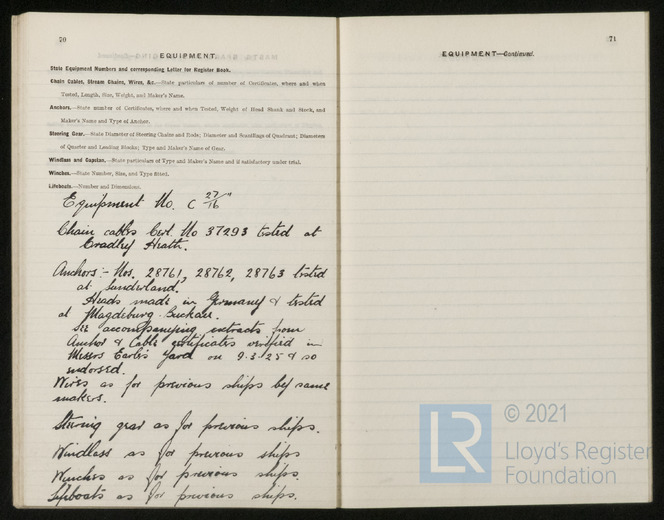 70
EQUIPMENT.
State Equipment Numbers and corresponding Letter for Register Book.
Chain Cables, Stream Chains, Wires, &c.—State particulars of number of Certificates, where and when
Tested, Length, Size, Weight, and Maker's Name.
Anchors.—State number of Certificates, where and when Tested, Weight of Head Shank and Stock, and
Maker's Name and Type of Anchor.
Steering Gear.—State Diameter of Steering Chains and Rods; Diameter and Scantlings of Quadrant; Diameters
of Quarter and Leading Blocks; Type and Maker's Name of Gear.
Windlass and Capstan.—State particulars of Type and Maker's Name and if satisfactory under trial.
Winches.—State Number, Size, and Type fitted.
Lifeboats.—Number and Dimensions.
Equipment No. C 27/16"
Chain cables Cert. No 37293 tested at
Cradley Heath.
Anchors:- Nos. 28761, 28762, 28763 tested
at Sunderland.
Heads made in Germany & tested
at Magdeburg-Buckau.
See accompanying extracts from
Anchor & Cable certificates verified in
Messrs Earle's Yard on 9.3.25 & so
endorsed.
Wires as for previous ships by same
makers.
Steering gear as for previous ships.
Windlass as for previous ships
Winches as for previous ships.
Lifeboats as for previous ships.
71
EQUIPMENT—Continued.
LR
© 2021
Lloyd's Register
Foundation